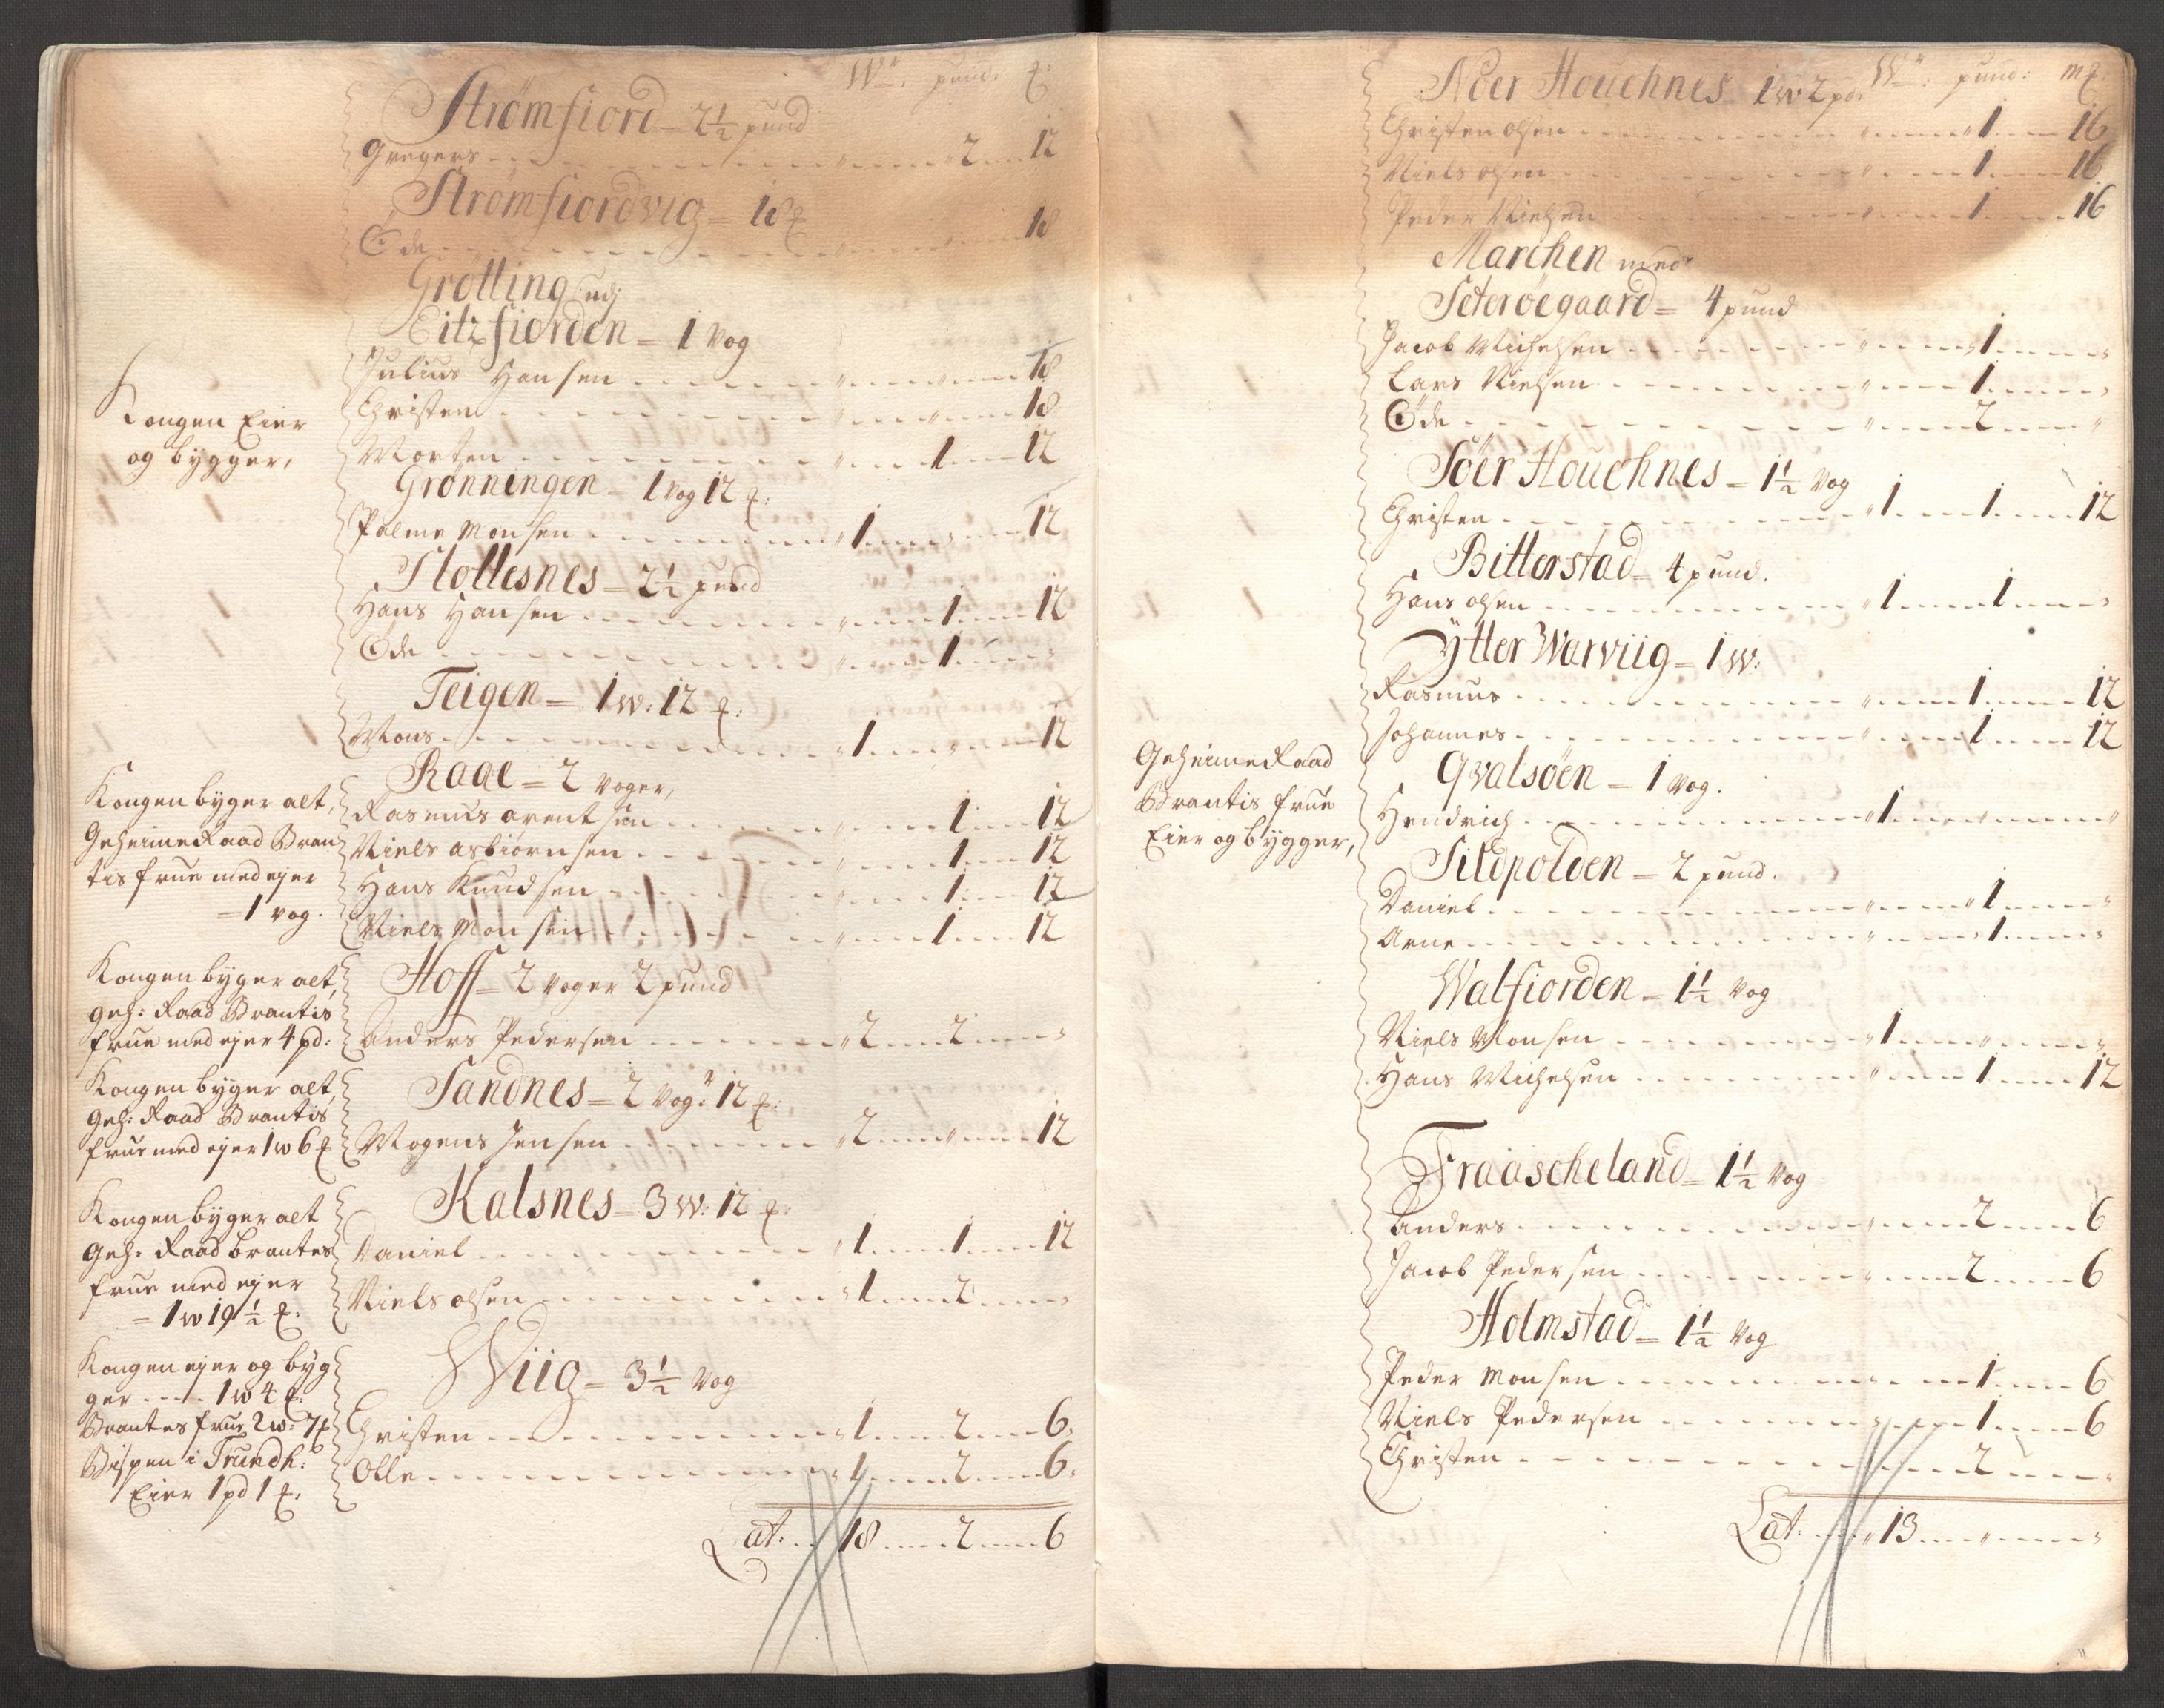 Wr. pund. ℔:
Strømfiord = 2½ pund
Gregers - - - " - - 2 - - 12
Strømfiordvig = 18 ℔
Øde - - - " - - " - - 18
Grøtting udj
Eitzfiorden = 1 Vog
Kongen Eier
og bygger,
Julius Hansen - - - " - - " - - 18
Christen - - - " - - " - - 18
Morten - - - " - - 1 - - 12
Grønningen = 1 Vog 12 ℔:
Palme Monsen - - - " 1 - - " - - 12
Slottesnes = 2½ pund
Hans Hansen - - - " - - 1 - - 12
Øde - - - " - - 1 - - "
Teigen = 1 w: 12 ℔:
Mons - - - " 1 - - " - - 12
Raae = 2 Voger,
Kongen byger alt,
Geheime Raad Bran
tis frue med ejer
= 1 vog.
Rasmus arentsen - - - " - - 1 - - 12
Niels asbiørnsen - - - " - - 1 - - 12
Hans Knudsen - - - " - - 1 - - 12
Niels Monsen - - - " - - 1 - - 12
Hoff = 2 Voger 2 pund
Kongen byger alt,
geh: Raad Brantis
frue med ejer 4 pd:
Anders Pedersen - - - " 2 - - 2 - - "
Sandnes = 2 Vog: 12 ℔:
Kongen byger alt,
geh: Raad Brantis
frue med ejer 1 w 6 ℔
Mogens Jensen - - - " 2 - - " - - 12
Kalsnes = 3 w: 12 ℔:
Kongen byger alt
geh: Raad brantes
frue med ejer
= 1 w 19½ ℔:
Daniel - - - " 1 - - 1 - - 12
Niels olsen - - - " 1 - - 2 - - "
Wiig = 3½ Vog
Kongen ejer og byg
ger - - - 1 w 4 ℔:
Brantes frue 2 w: 7 ℔
Bispen i Trundh:
Eier 1 pd 1 ℔:
Christen - - - " 1 - - 2 - - 6
Olle - - - " 1 - - 2 - - 6
Lat: - - " 18 - - 2 - - 6
Wr: pund: m℔:
Nöer Houchnes 1 w 2 pd:
Christen olsen - - - " - - 1 - - 16
Niels olsen - - - " - - 1 - - 16
Peder Nielsen - - - " - - 1 - - 16
Marchen med
Seterøegaard = 4 pund
Jacob Michelsen - - - " - - 1 - - "
Lars Nielsen - - - " - - 1 - - "
Øde - - - " - - 2 - - "
Söer Houchnes = 1½ Vog
Christen - - - " 1 - - 1 - - 12
Bitterstad = 4 pund.
Hans olsen - - - " 1 - - 1 - - "
Ytter Warviig = 1 w:
Rasmus - - - " - - 1 - - 12
Johannes - - - " - - 1 - - 12
Geheime Raad
Brantis frue
Eier og bygger,
Qvalsøen = 1 Vog.
Hendrich - - - " 1 - - " - - "
Sildpolden = 2 pund.
Daniel - - - " - - 1 - - "
Arne - - - " - - 1 - - "
Walfiorden = 1½ Vog
Niels Monsen - - - " 1 - - " - - "
Hans Michelsen - - - " - - 1 - - 12
Fraascheland = 1½ Vog
Anders - - - " - - 2 - - 6
Jacob Pedersen - - - " - - 2 - - 6
Holmstad = 1½ Vog
Peder Monsen - - - " - - 1 - - 6
Niels Pedersen - - - " - - 1 - - 6
Christen - - - " - - 2 - - "
Lat: - - " 13 - - " - - "